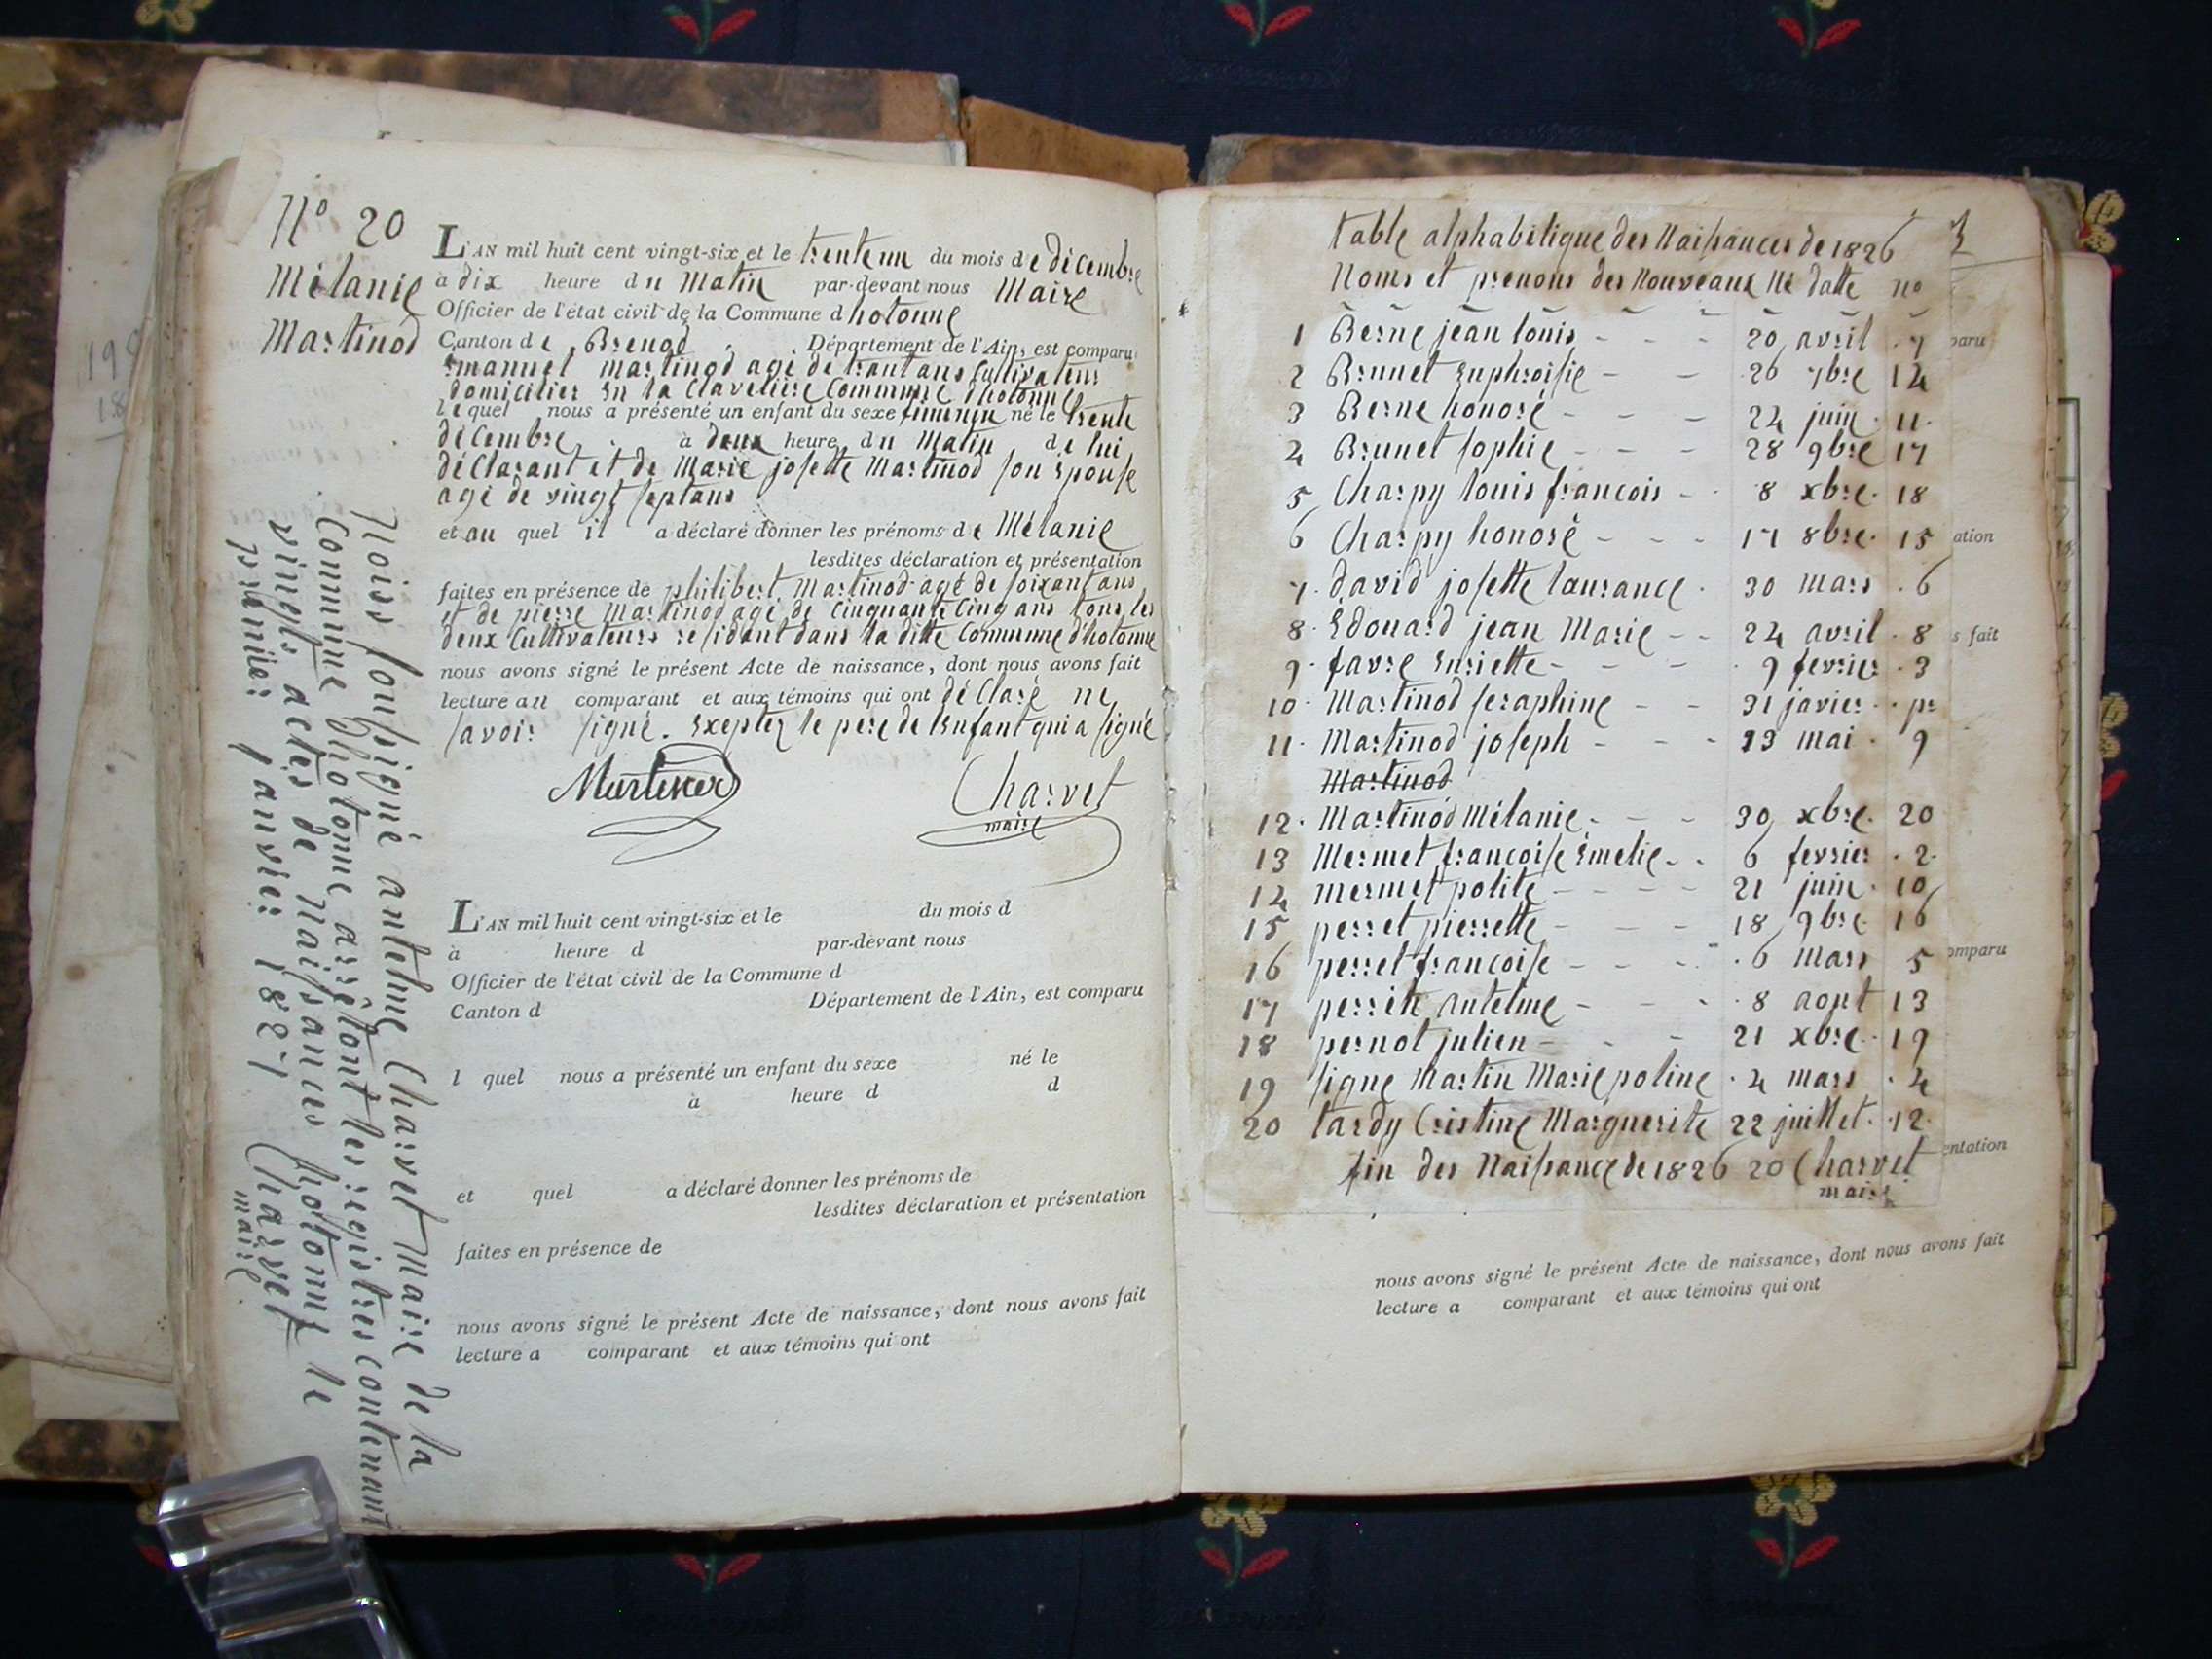 N° 20
Mélanie
Martinod
L'AN mil huit cent vingt-six et le trente un du mois de décembre
à dix heure du Matin par-devant nous Maire
Officier de l'état civil de la Commune d hotonne
Canton de Brenod Département de l'Ain, est comparu
Emanuel martinod agé de trant ans Cultivateur
domicilier En la Claveliere Commune d'hotonne
lequel nous a présenté un enfant du sexe féminin né le trente
décembre à deux heure du Matin de lui
déClarant et de Marie josette Martinod son Epouse
agé de vingt sept ans
et au quel il a déclaré donner les prénoms de Mélanie
lesdites déclaration et présentation
faites en présence de philibert Martinod agé de soixant ans
et de pierre Martinod agé de cinquante cinq ans tous les
deux Cultivateurs residant dans la ditte Commune d'hotonne
nous avons signé le présent Acte de naissance, dont nous avons fait
lecture au comparant et aux témoins qui ont déClaré ne
savoir signé. Exeptez le pere de lEnfant qui a signé
Martinod Charvet
maire
L'AN mil huit cent vingt-six et le du mois d
à heure d par-devant nous
Officier de l'état civil de la Commune d
Canton d Département de l'Ain, est comparu
l quel nous a présenté un enfant du sexe né le
à heure d d
et quel a déclaré donner les prénoms de
lesdites déclaration et présentation
faites en présence de
nous avons signé le présent Acte de naissance, dont nous avons fait
lecture a comparant et aux témoins qui ont
Noiss sousigné antelme Charvet Maire de la
Commune d'hotonne arrêtont les registres contenant
vingts actes de Naissances hotonne le
premier janvier 1827 Charvet
maire
table alphabetique des Naissances de 1826
Noms et prenoms des Nouveaux Né datte n°
1 Berne jean louis - - - 20 avril 7
2 Brunet Euphroisie - - 26 7bre 14
3 Berne honoré - - - 24 juin 11
4 Brunet sophie - - - 28 9bre 17
5 Charpy louis francois - 8 xbre 18
6 Charpy honoré - - - 17 8bre 15
7 david josette laurance 30 mars 6
8 Edouard jean Marie - - 24 avril 8
9 favre Enriette - - - 9 fevrier 3
10 Martinod seraphine - - 31 javier pr
11 Martinod joseph - - - 13 mai 9
Martinod
12 Martinod Mélanie - - - 30 xbre 20
13 Mermet francoise Emelie - 6 fevrier 2
14 mermet polite - - - - 21 juin 10
15 perret pierrette - - - 18 9bre 16
16 perret francoise - - - 6 mars 5
17 perrin antelme - - - 8 aout 13
18 pernot julien - - - 21 xbre 19
19 signe Martin Marie poline 4 mars 4
20 tardy Cristine Marguerite 22 juillet 12
fin des Naissance de 1826 20 Charvet
maire
paru
ation
s fait
omparu
entation
nous avons signé le présent Acte de naissance, dont nous avons fait
lecture a comparant et aux témoins qui ont